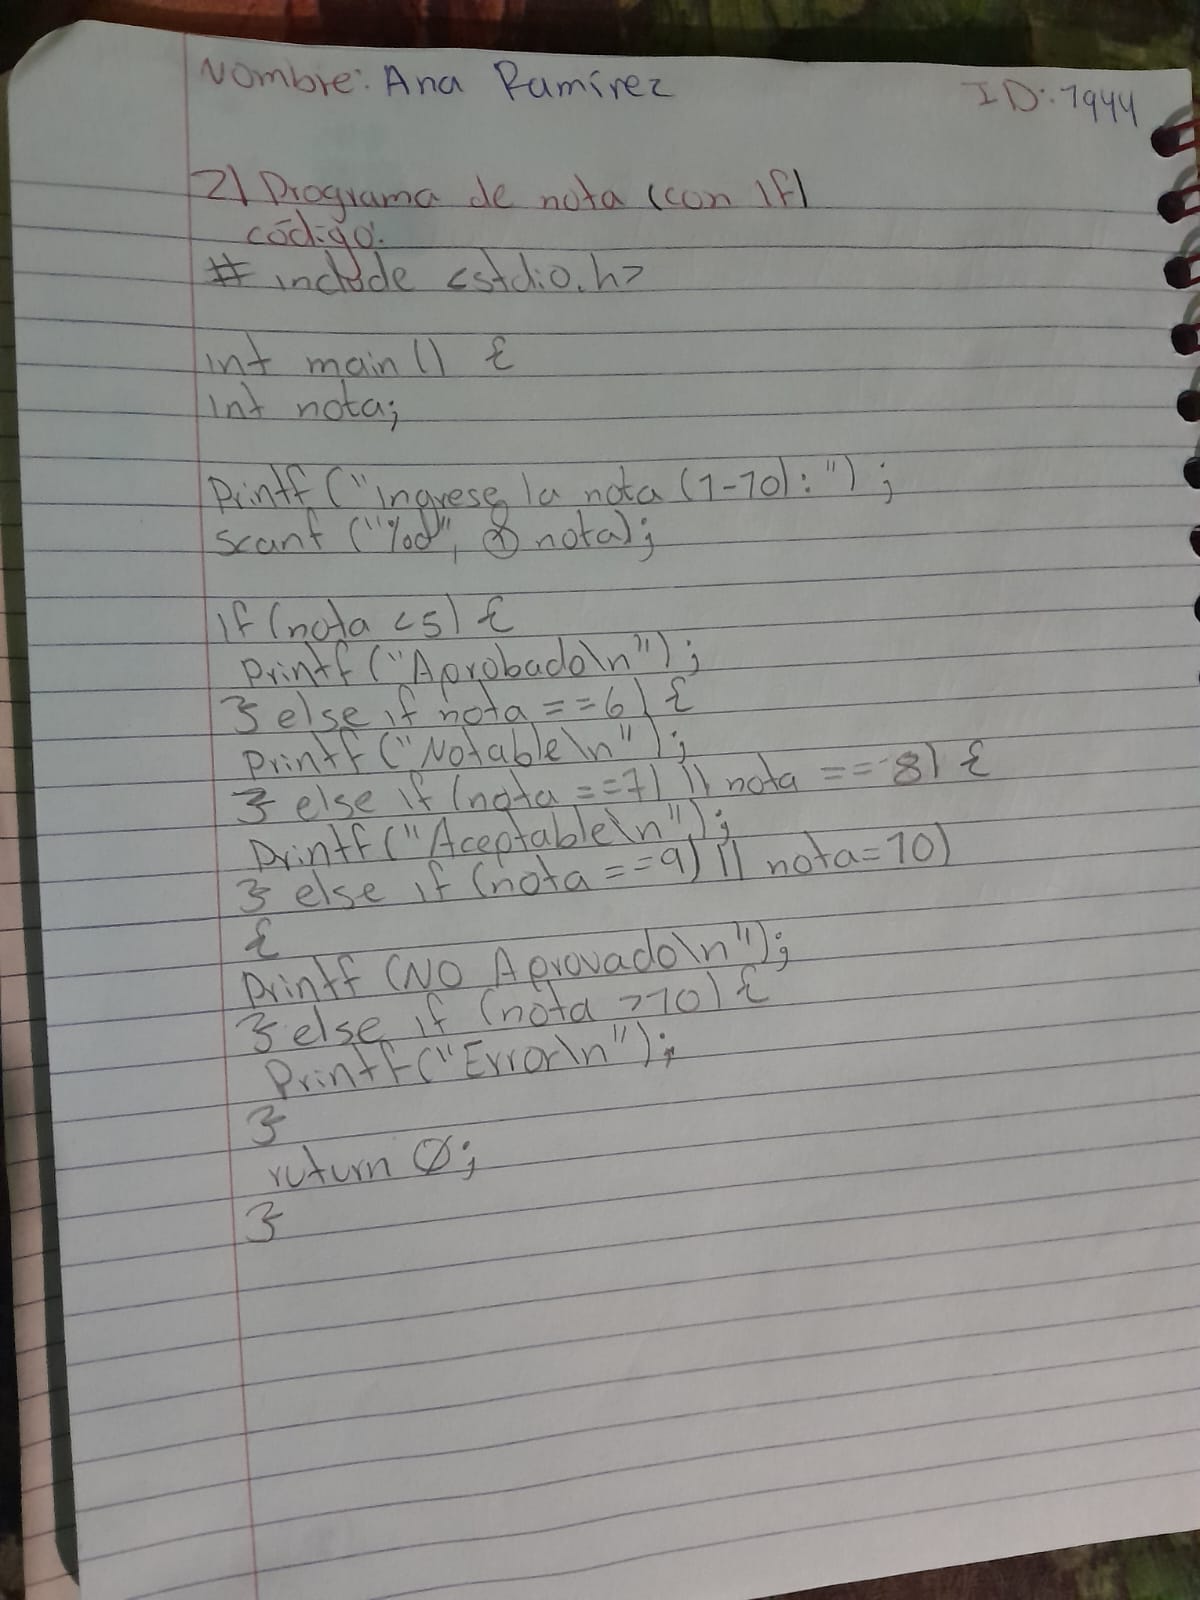 Nombre: Ana Ramírez ID: 1944
2) Programa de nota (con if)
código:
# include <stdio.h>
int main () {
int nota;
Printf ("ingrese la nota (1-10): ") ;
scanf ("%d", & nota);
if (nota <5) {
printf ("Aprobado\n");
} else if nota ==6) {
printf ("Notable\n");
} else if (nota ==7) || nota == 8) {
Printf ("Aceptable\n");
} else if (nota ==9) || nota=10)
{
Printf (NO Aprovado\n");
} else if (nota >10) {
Printf ("Error\n");
}
ruturn 0;
}